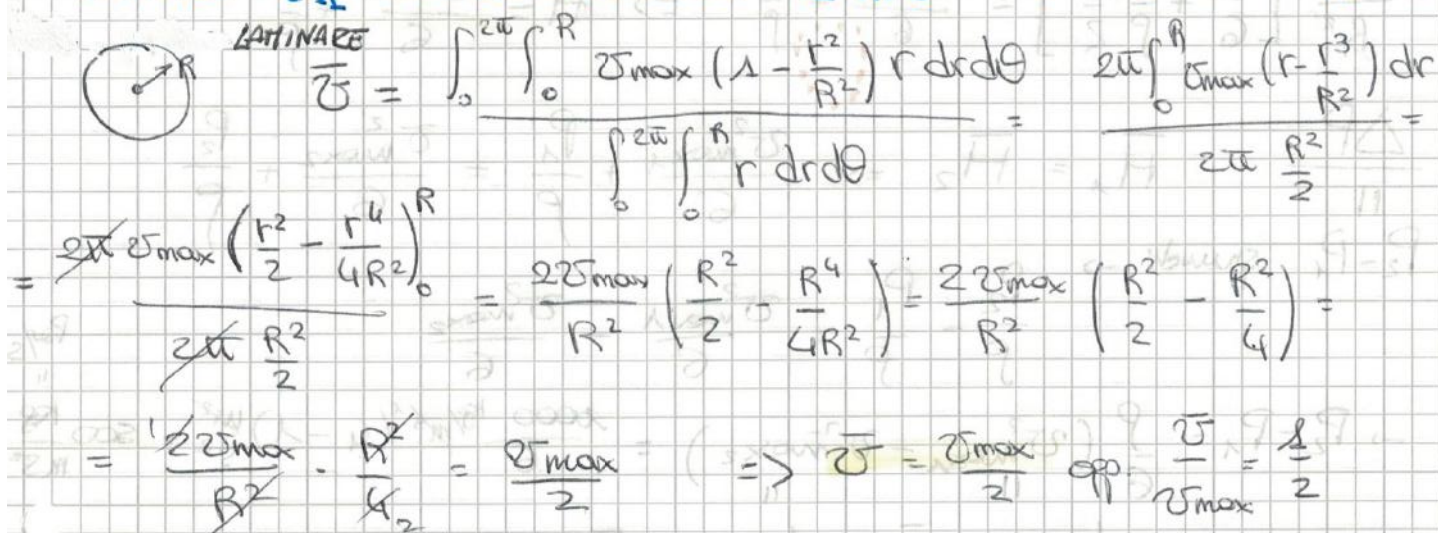 R LAMINARE
v̄ = ∫₀^{2π} ∫₀^R v_max (1 - r²/R²) r dr dθ / ∫₀^{2π} ∫₀^R r dr dθ = 2π ∫₀^R v_max (r - r³/R²) dr / 2π R²/2 =
= 2π v_max (r²/2 - r⁴/4R²)₀^R / 2π R²/2 = 2v_max/R² (R²/2 - R⁴/4R²) = 2v_max/R² (R²/2 - R²/4) =
= 2v_max/R² · R²/4 = v_max/2 => v̄ = v_max/2 opp. v̄/v_max = 1/2